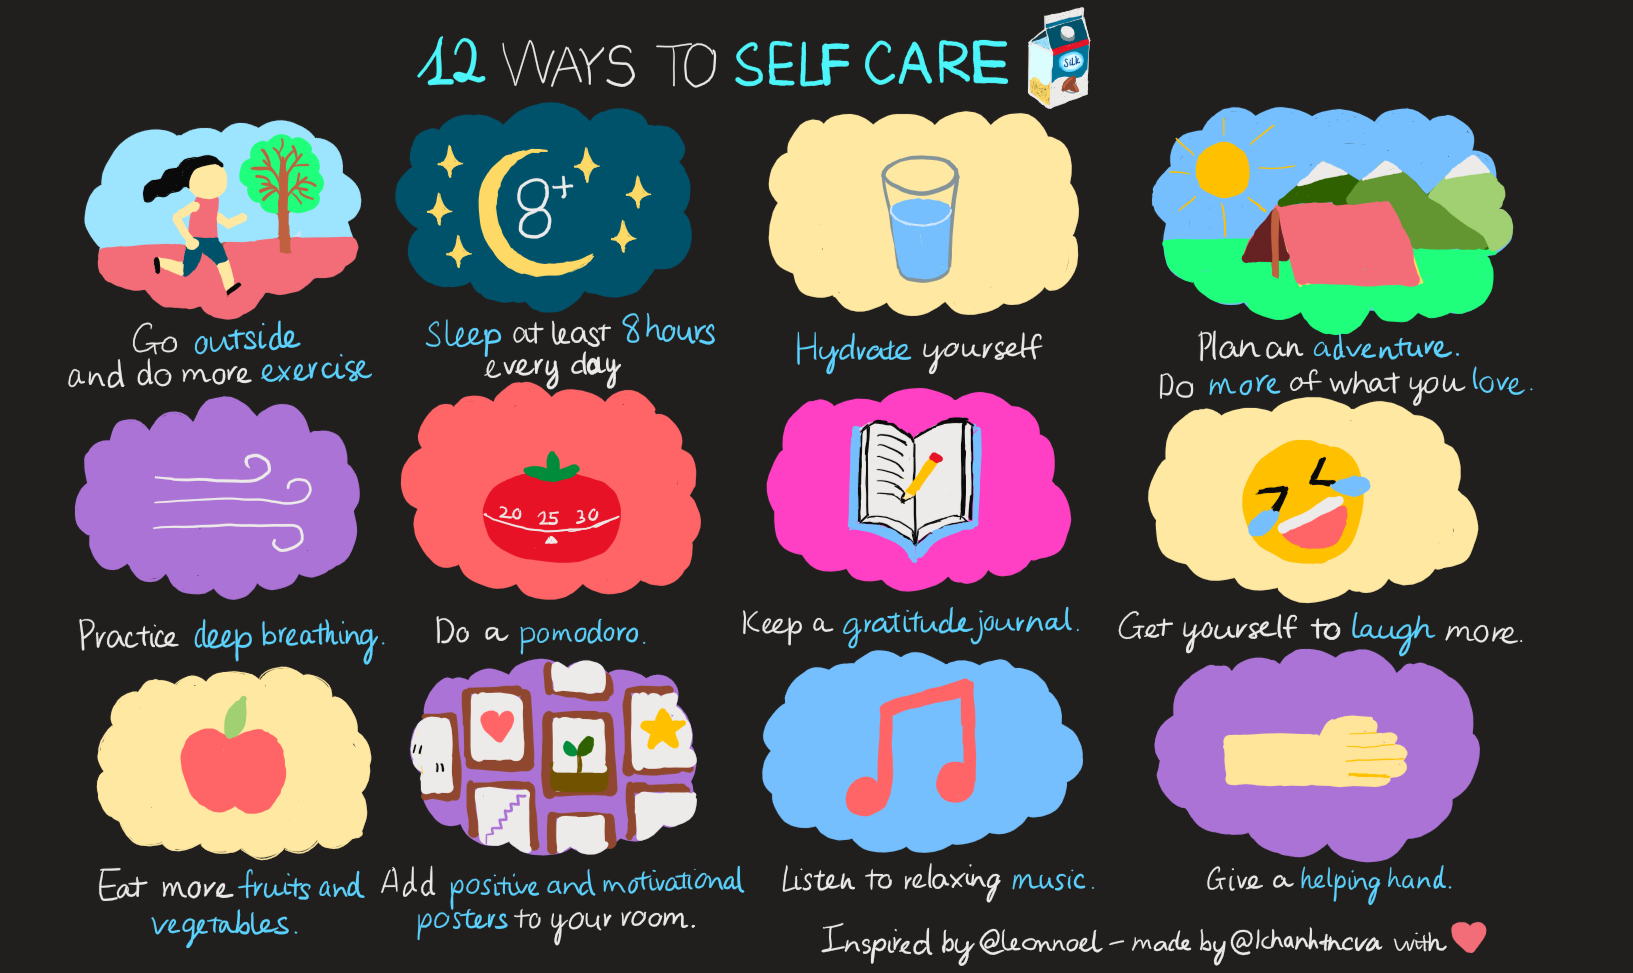 12 WAYS TO SELF CARE
Silk
8+
Go outside
and do more exercise
Sleep at least 8 hours
every day
Hydrate yourself
Plan an adventure.
Do more of what you love.
20 25 30
Practice deep breathing.
Do a pomodoro.
Keep a gratitude journal.
Get yourself to laugh more.
Eat more fruits and
vegetables.
Add positive and motivational
posters to your room.
Listen to relaxing music.
Give a helping hand.
Inspired by @leonnoel - made by with